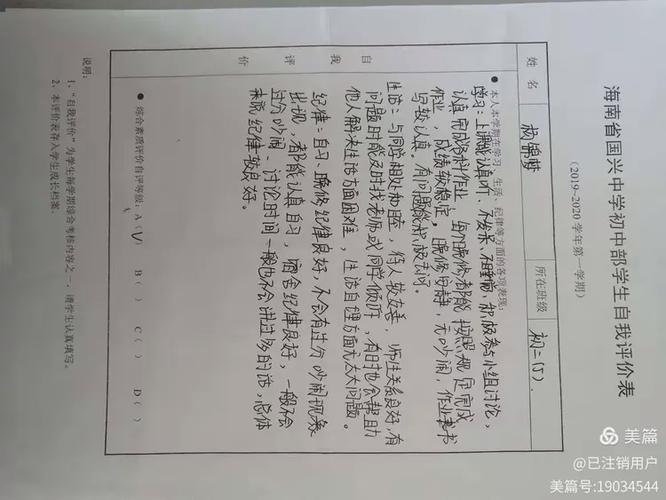 海南省国兴中学初中部学生自我评价表
(2019-2020 学年第一学期)
姓 名
杨锦梦
所在班级
初二(5).
自 我 评 价
●本人本学期在学习、生活、纪律等方面的各项表现:
学习:上课能认真听,不发呆、不睡觉,积极参与小组讨论,
认真完成各科作业,每个晚修都能按照规定完成
作业,成绩较稳定。晚修安静,无吵闹,作业书
写较认真。有问题能积极去问。
生活:与同学相处和睦,待人较友善,师生关系良好,有
问题时能及时找老师或同学倾诉,有时也会帮助
他人解决生活方面困难,生活自理方面无太大问题。
纪律:自习、晚修纪律良好,不会有过分吵闹现象
出现,都能认真自习,宿舍纪律良好,一般不会
过分吵闹,讨论时间一般也不会讲过多的话,总体
来说纪律较良好。
● 综合素质评价自评等级:A(√) B( ) C( ) D( )
说明:
1、“自我评价”为学生每学期综合考核内容之一,请学生认真填写。
2、本评价表存入学生成长档案。
美篇
@已注销用户
美篇号:19034544